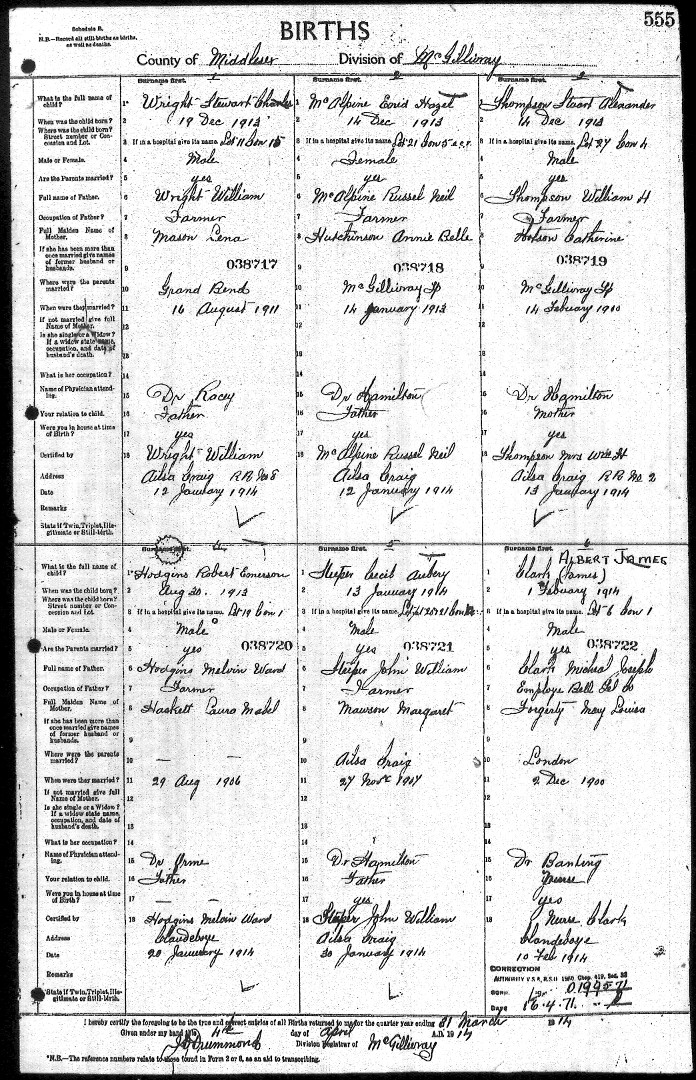 Schedule B.
N.B.—Record all still births as births, as well as deaths.
BIRTHS
555
County of Middlesex Division of McGillivray
Surname first. 1 Surname first. 2 Surname first. 3
What is the full name of child? 1 Wright Stewart Charles 1 McAlpine Enid Hazel 1 Thompson Stuart Alexander
When was the child born? 2 19 Dec 1913 2 14 Dec 1913 2 14 Dec 1913
Where was the child born? Street number or Concession and Lot. 3 If in a hospital give its name. Lot 11 Con 15 3 If in a hospital give its name. Lot 21 Con 5 3 If in a hospital give its name. Lot 27 Con 4
Male or Female. 4 Male 4 Female 4 Male
Are the Parents married? 5 yes 5 yes 5 yes
Full name of Father. 6 Wright William 6 McAlpine Russel Neil 6 Thompson William H
Occupation of Father? 7 Farmer 7 Farmer 7 Farmer
Full Maiden Name of Mother. 8 Mason Lena 8 Hutchinson Annie Belle 8 Hotson Catherine
If she has been more than once married give names of former husband or husbands. 9 038717 9 038718 9 038719
Where were the parents married? 10 Grand Bend 10 McGillivray Tp 10 McGillivray Tp
When were they married? 11 16 August 1911 11 14 January 1913 11 14 Febuary 1900
If not married give full Name of Mother. 12 12 12
Is she single or a Widow? If a widow state name, occupation, and date of husband's death. 13 13 13
What is her occupation? 14 14 14
Name of Physician attending. 15 Dr Racey 15 Dr Hamilton 15 Dr Hamilton
Your relation to child. 16 Father 16 Father 16 Mother
Were you in house at time of Birth? 17 yes 17 yes 17 yes
Certified by 18 Wright William 18 McAlpine Russel Neil 18 Thompson Mrs Wm H
Address Ailsa Craig RR No 8 Ailsa Craig Ailsa Craig RR No 2
Date 12 January 1914 12 January 1914 13 January 1914
Remarks
State if Twin, Triplet, Illegitimate or Still-birth.
Surname first. 4 Surname first. 5 Surname first. 6
ALBERT JAMES
What is the full name of child? 1 Hodgins Robert Emerson 1 Steeper Cecil Aubery 1 Clark (James)
When was the child born? 2 Aug 30. 1913 2 13 January 1914 2 1 Febuary 1914
Where was the child born? Street number or Concession and Lot. 3 If in a hospital give its name. Lot 19 Con 1 3 If in a hospital give its name. 3 If in a hospital give its name. Lot 6 Con 1
Male or Female. 4 Male 4 Male 4 Male
Are the Parents married? 5 yes 038720 5 yes 038721 5 yes 038722
Full name of Father. 6 Hodgins Melvin Ward 6 Steeper John William 6 Clark Micheal Joseph
Occupation of Father? 7 Farmer 7 Farmer 7 Employe Bell Tel Co
Full Maiden Name of Mother. 8 Haskett Laura Mabel 8 Mawson Margaret 8 Forgerty May Louisa
If she has been more than once married give names of former husband or husbands. 9 9 9
Where were the parents married? 10 — — 10 Ailsa Craig 10 London
When were they married? 11 29 Aug 1906 11 27 Nov 1907 11 2 Dec 1900
If not married give full Name of Mother. 12 12 12
Is she single or a Widow? If a widow state name, occupation, and date of husband's death. 13 13 13
What is her occupation? 14 14 14
Name of Physician attending. 15 Dr Orme 15 Dr Hamilton 15 Dr Banting
Your relation to child. 16 Father 16 Father 16 Nurse
Were you in house at time of Birth? 17 — — 17 yes 17 yes
Certified by 18 Hodgins Melvin Ward 18 Steeper John William 18 Nurse Clark
Address Clandeboye Ailsa Craig Clandeboye
Date 20 January 1914 30 January 1914 10 Feb 1914
Remarks
CORRECTION
AUTHORITY V.S.A. R.S.O. 1960 Chap. 419, Sec. 32
CORR. 019957
DATE 16.4.71
State if Twin, Triplet, Illegitimate or Still-birth.
I hereby certify the foregoing to be the true and correct entries of all Births returned to me for the quarter ending 31 March 1914
Given under my hand this 4th day of April A.D. 1914
J Drummond Division Registrar of McGillivray
*N.B.—The reference numbers relate to those found in Form 2 or 8, as an aid to transcribing.